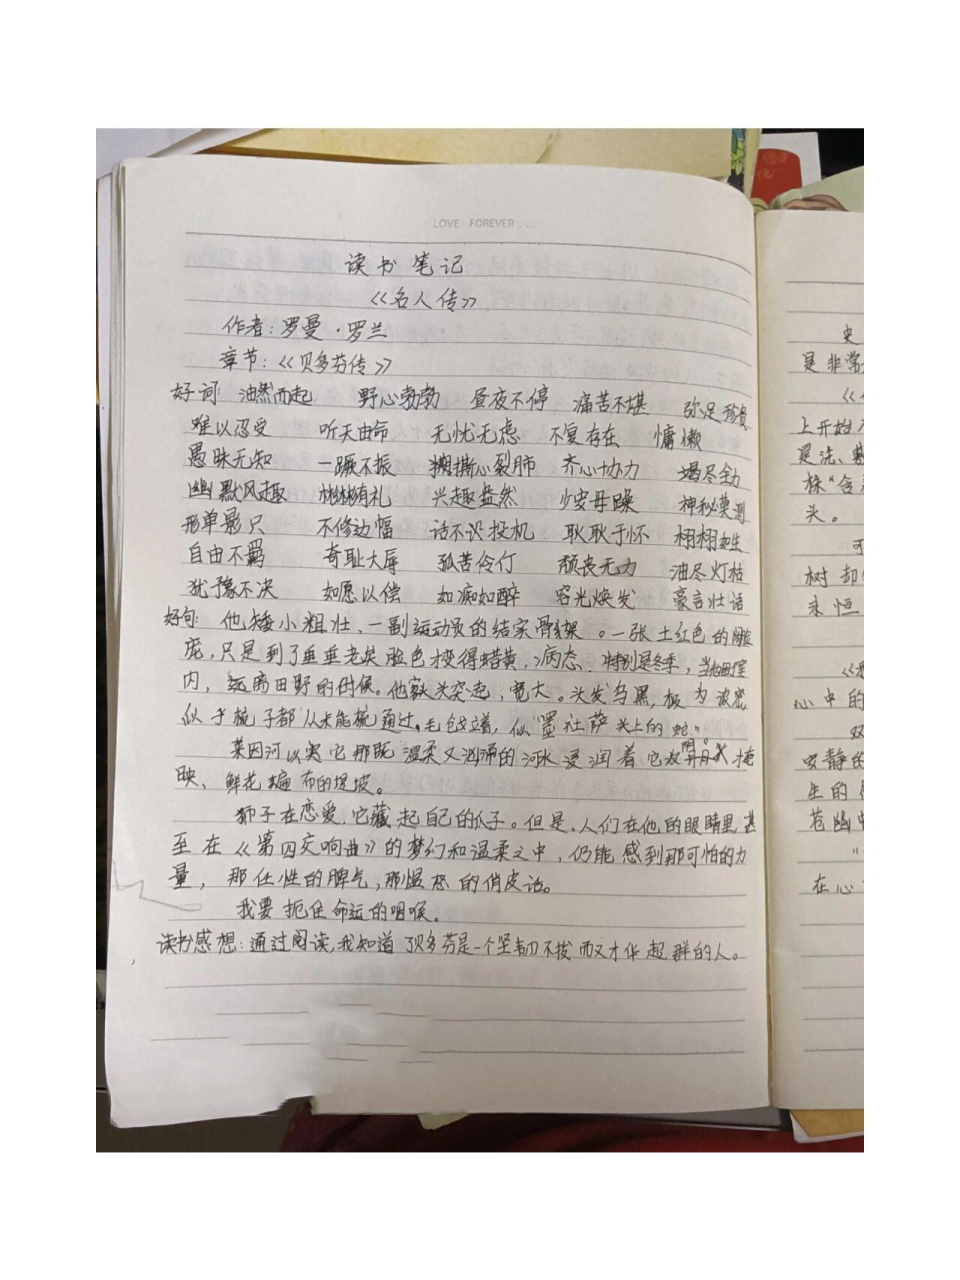 LOVE FOREVER...
读书笔记
《名人传》
作者：罗曼·罗兰
章节：《贝多芬传》
好词 油然而起 野心勃勃 昼夜不停 痛苦不堪 弥足珍贵
难以忍受 听天由命 无忧无虑 不复存在 慵懒
愚昧无知 一蹶不振 撕心裂肺 齐心协力 竭尽全力
幽默风趣 彬彬有礼 兴趣盎然 少安毋躁 神秘莫测
形单影只 不修边幅 话不识投机 耿耿于怀 栩栩如生
自由不羁 奇耻大辱 孤苦伶仃 颓丧无力 油尽灯枯
犹豫不决 如愿以偿 如痴如醉 容光焕发 豪言壮语
好句 他矮小粗壮，一副运动员的结实骨架。一张土红色的脸
庞，只是到了垂垂老矣脸色才变得蜡黄，病态，特别是冬季，当他囿室
内，远离田野的时候。他额头突起，宽大。头发乌黑，极为浓密
似乎梳子都从未能梳通过，毛戗立着，似“墨杜萨头上的蛇”。
莱因河以它那温柔又汹涌的河水浸润着它被阴风掩
映、鲜花遍布的堤坡。
狮子在恋爱，它藏起自己的爪子。但是，人们在他的眼睛里，甚
至在《第四交响曲》的梦幻和温柔之中，仍能感到那可怕的力
量，那任性的脾气，那愠怒的俏皮话。
我要扼住命运的咽喉。
读书感想：通过阅读，我知道了贝多芬是一个坚韧不拔而又才华超群的人。
史
是非常
《
上开始
是洗、
株“含
头。
可
树却
永恒
《
心中的
双
吸静的
生的
苍幽
“
在心